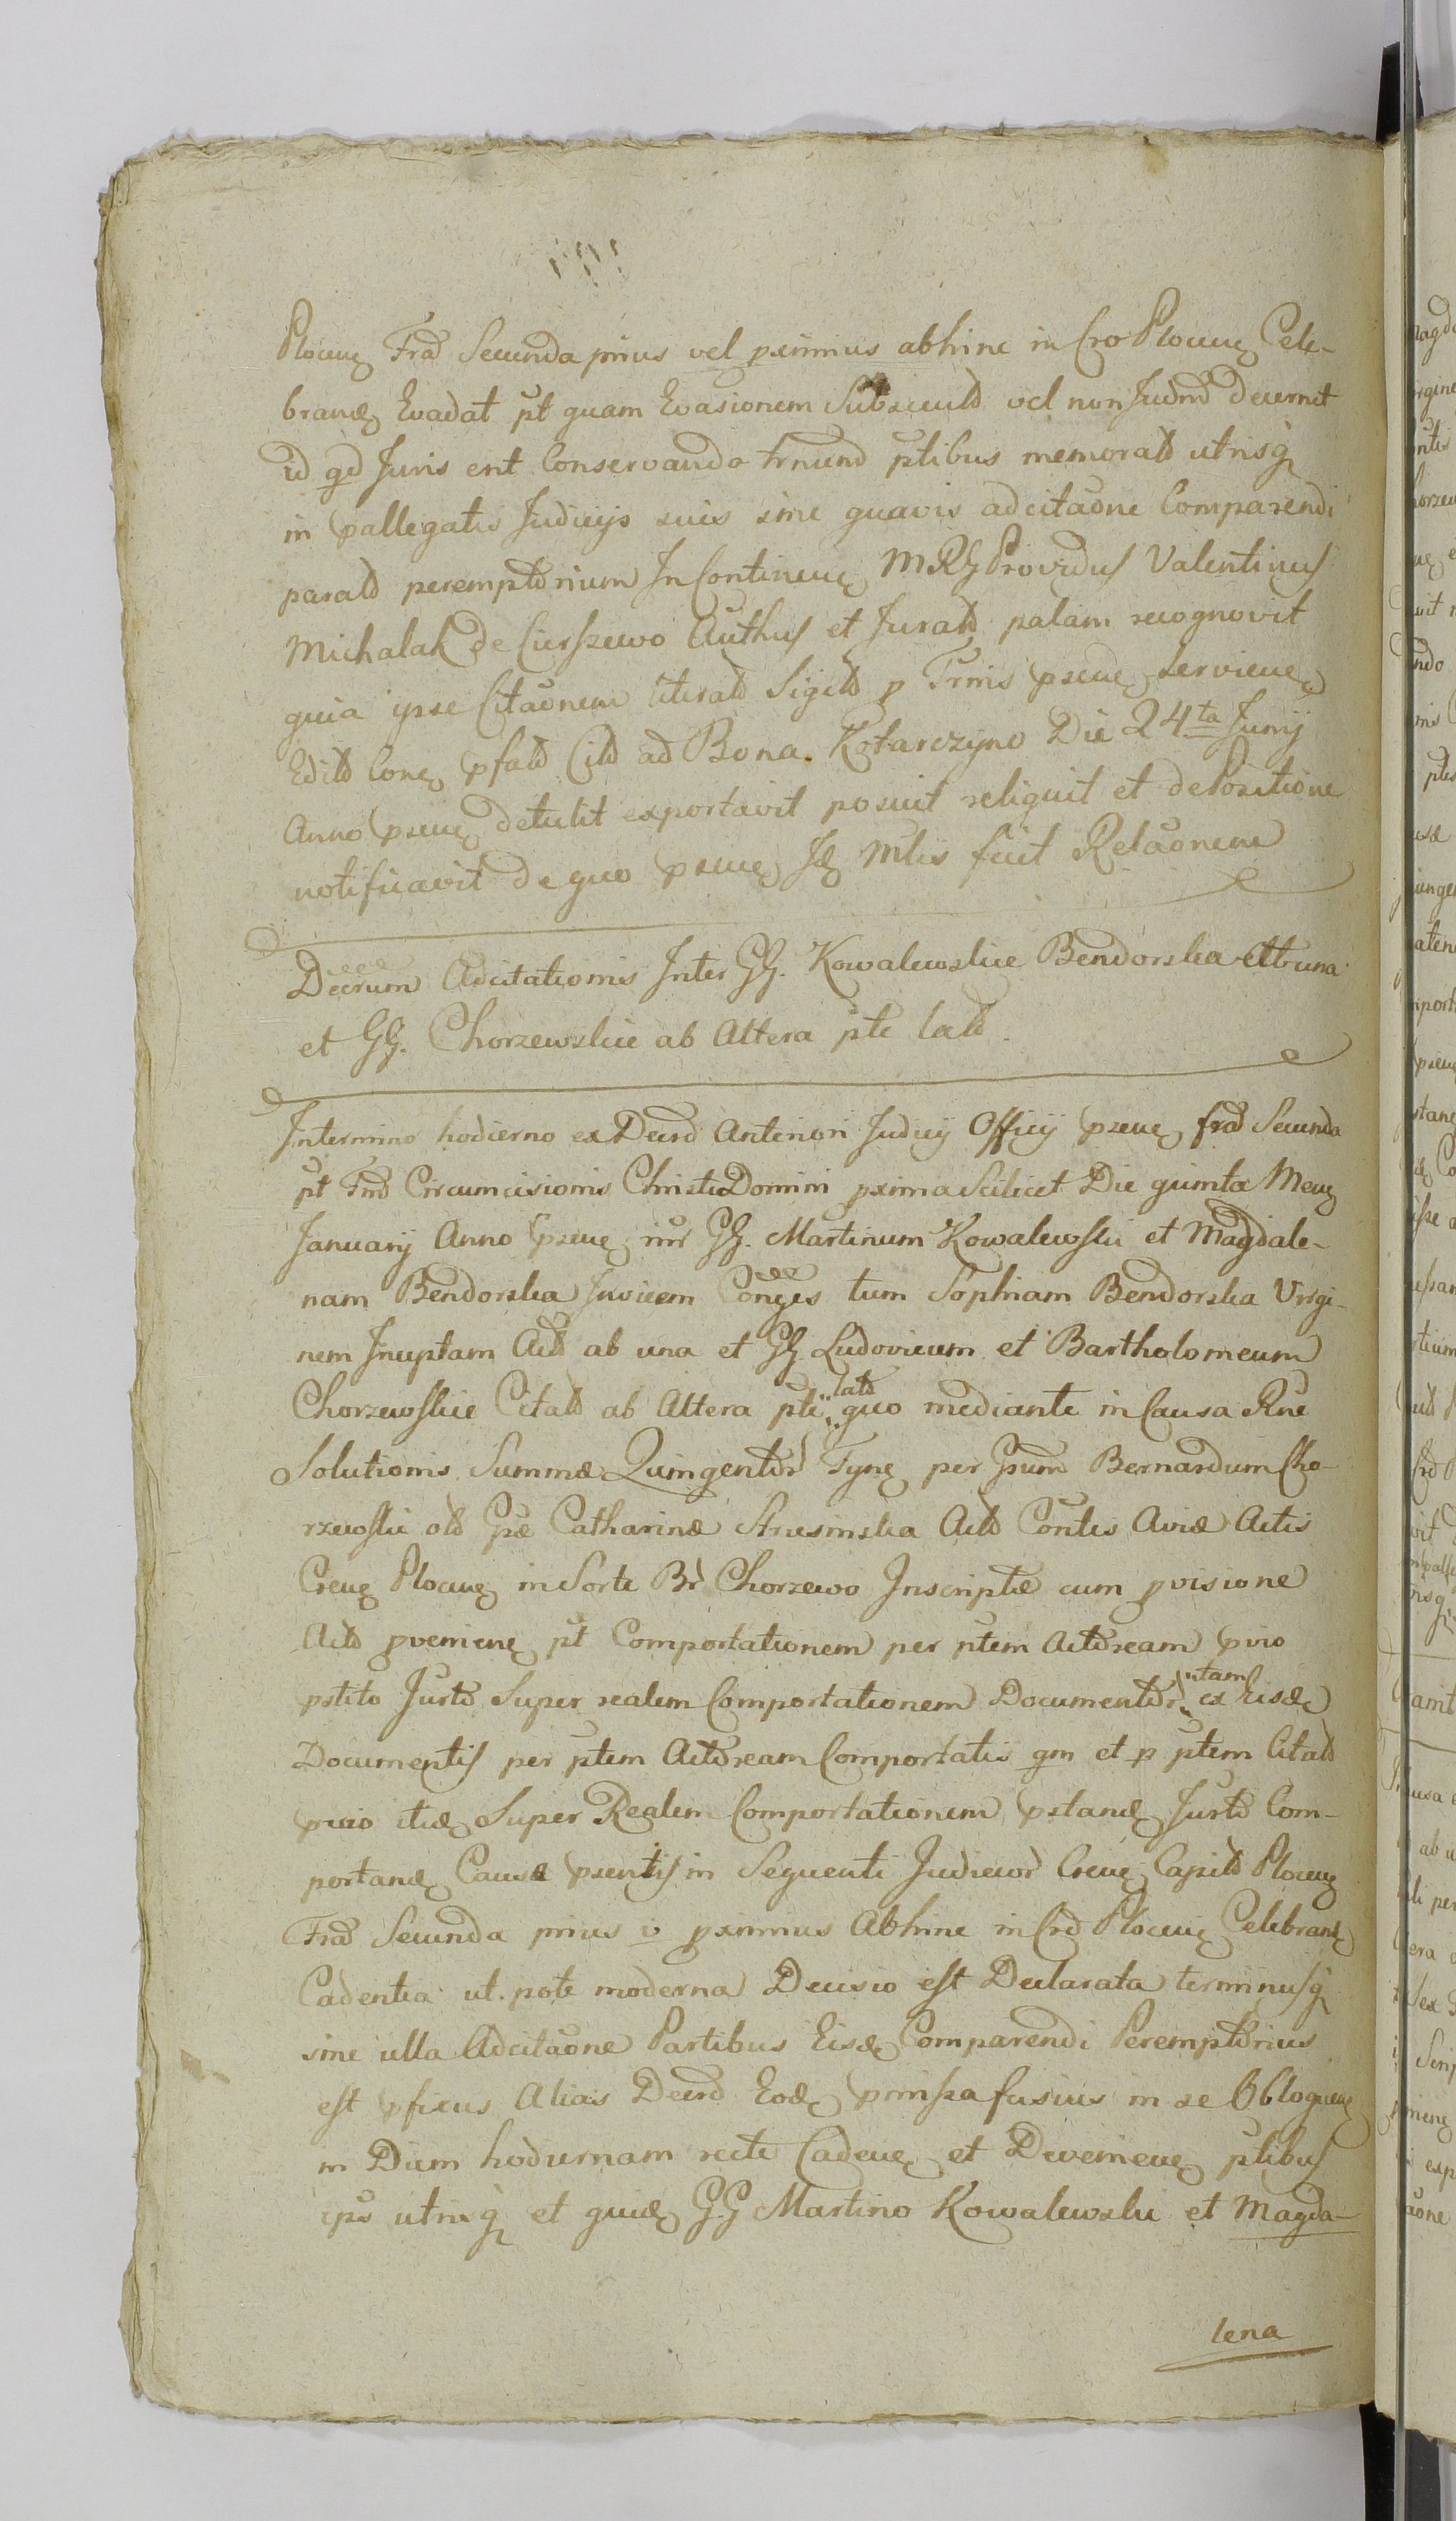 Plocen Fra Secunda prius vel pximius abhinc in Cro Plocen Cele-
brand Evadat pt quam Evasionem Subsecutd vel non Judnd Decernet
id qd Juris erit Conservando trnund ptibus memoratd utrisq
in pallegatis Judicijs suis sine quavis adcitaone Comparendi
paratd peremptorium In Continen MRG Providus Valentinus
Michalak de Cierszewo Authus et Juratd palam recognovit
quia ipse Citaonem literatd Sigiltd p Trmis psen servien
Editd Con pfatd Citd ad Bona Kotarczyno Die 24ta Junij
Anno psen detulit exportavit posuit reliquit et de Positione
notificavit de quo psen Jd Mlis fecit Relaonem
Decrum Adcitationis Inter GG. Kowalewskie Bendorska ab una
et GG. Chorzewskie ab Altera pte latd.
In termino hodierno ex Decrd Anteriori Judicij Officij psen fra Secunda
pt Fm Circumcisionis Christi Domini pxima Scilicet Die quinta Men
Januarij Anno psen inr GG. Martinum Kowalewski et Magdale-
nam Bendorska Invicem Conges tum Sophiam Bendorska Virgi-
nem Inuptam Actd ab una et GG. Ludovicum et Bartholomeum
Chorzewskie Citatd ab Altera pte latd quo mediante in Causa Rne
Solutionis Summæ Quingentor Tyn per Gsum Bernardum Cho-
rzewski old Gsæ Catharinæ Strusinska Actd Contis Aviæ Actis
Cren Plocen in Sorte Br Chorzewo Inscriptæ cum pvisione
Actd pvenien pt Comportationem per ptem Actoream pvio
pstito Jurtd Super realem Comportationem Documentor utam ex Eisd
Documentis per ptem Actoream Comportatis qm et p ptem Citatd
pvio itid Super Realem Comportationem pstand Jurtd Com-
portand Causæ psentis in Sequenti Judicior Cren Capitd Plocen
Fra Secunda prius v pximius Abhinc in Crd Plocen Celebrand
Cadentia ut pote moderna Decisio est Declarata terminusq
sine ulla Adcitaone Partibus Eisd Comparendi Peremptorius
est pfixus Alias Decrd Eod pmissa fusius in se Obloquen
in Diem hodiernam recte Caden et Devenien ptibus
ips utrisq et quid GG Martino Kowalewski et Magda-
lena